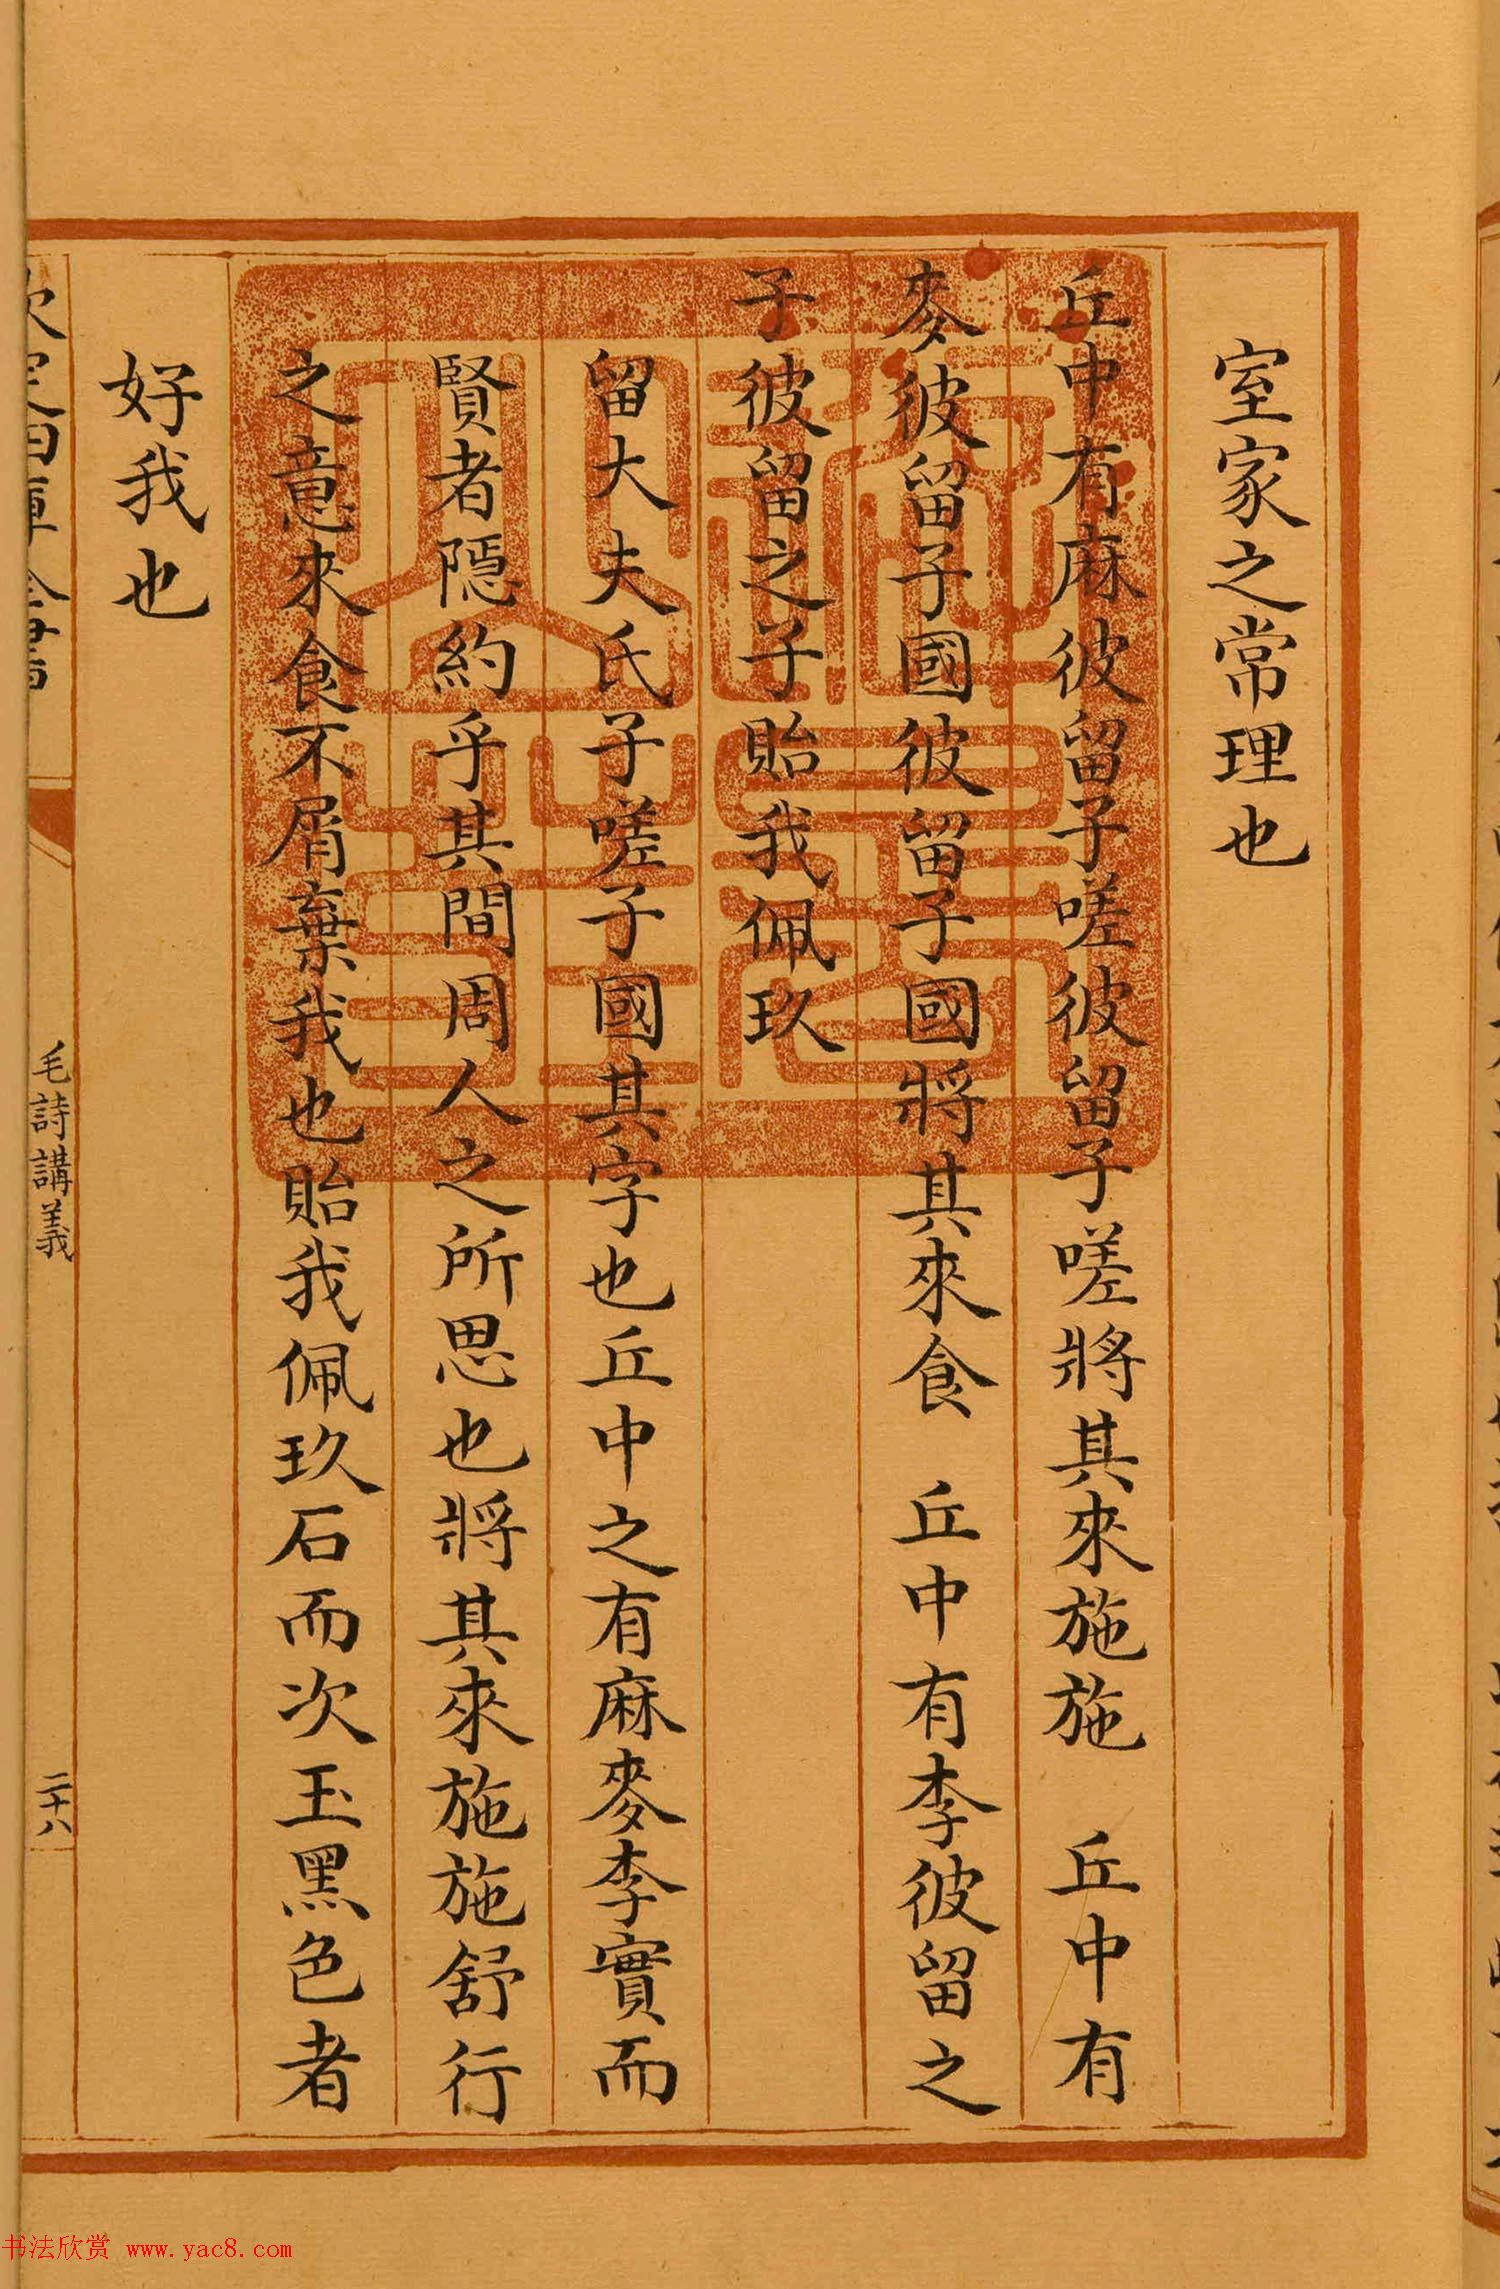 室家之常理也
丘中有麻彼留子嗟彼留子嗟將其來施施　丘中有
麥彼留子國彼留子國將其來食　丘中有李彼留之
子彼留之子貽我佩玖
留大夫氏子嗟子國其字也丘中之有麻麥李實而
賢者隱約乎其間周人之所思也將其來施施舒行
之意來食不屑棄我也貽我佩玖石而次玉黑色者
好我也
毛詩講義
二十八
书法欣赏 www.yac8.com